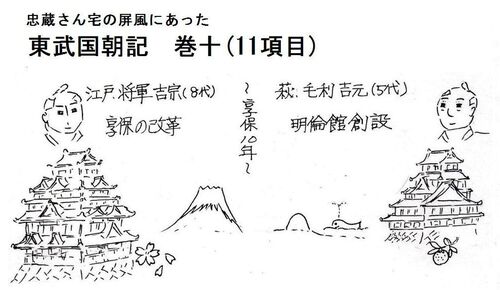 忠蔵さん宅の屏風にあった
東武国朝記 巻十(11項目)
江戸.将軍吉宗(8代)
享保の改革
～享保10年～
萩.毛利吉元(5代)
明倫館創設